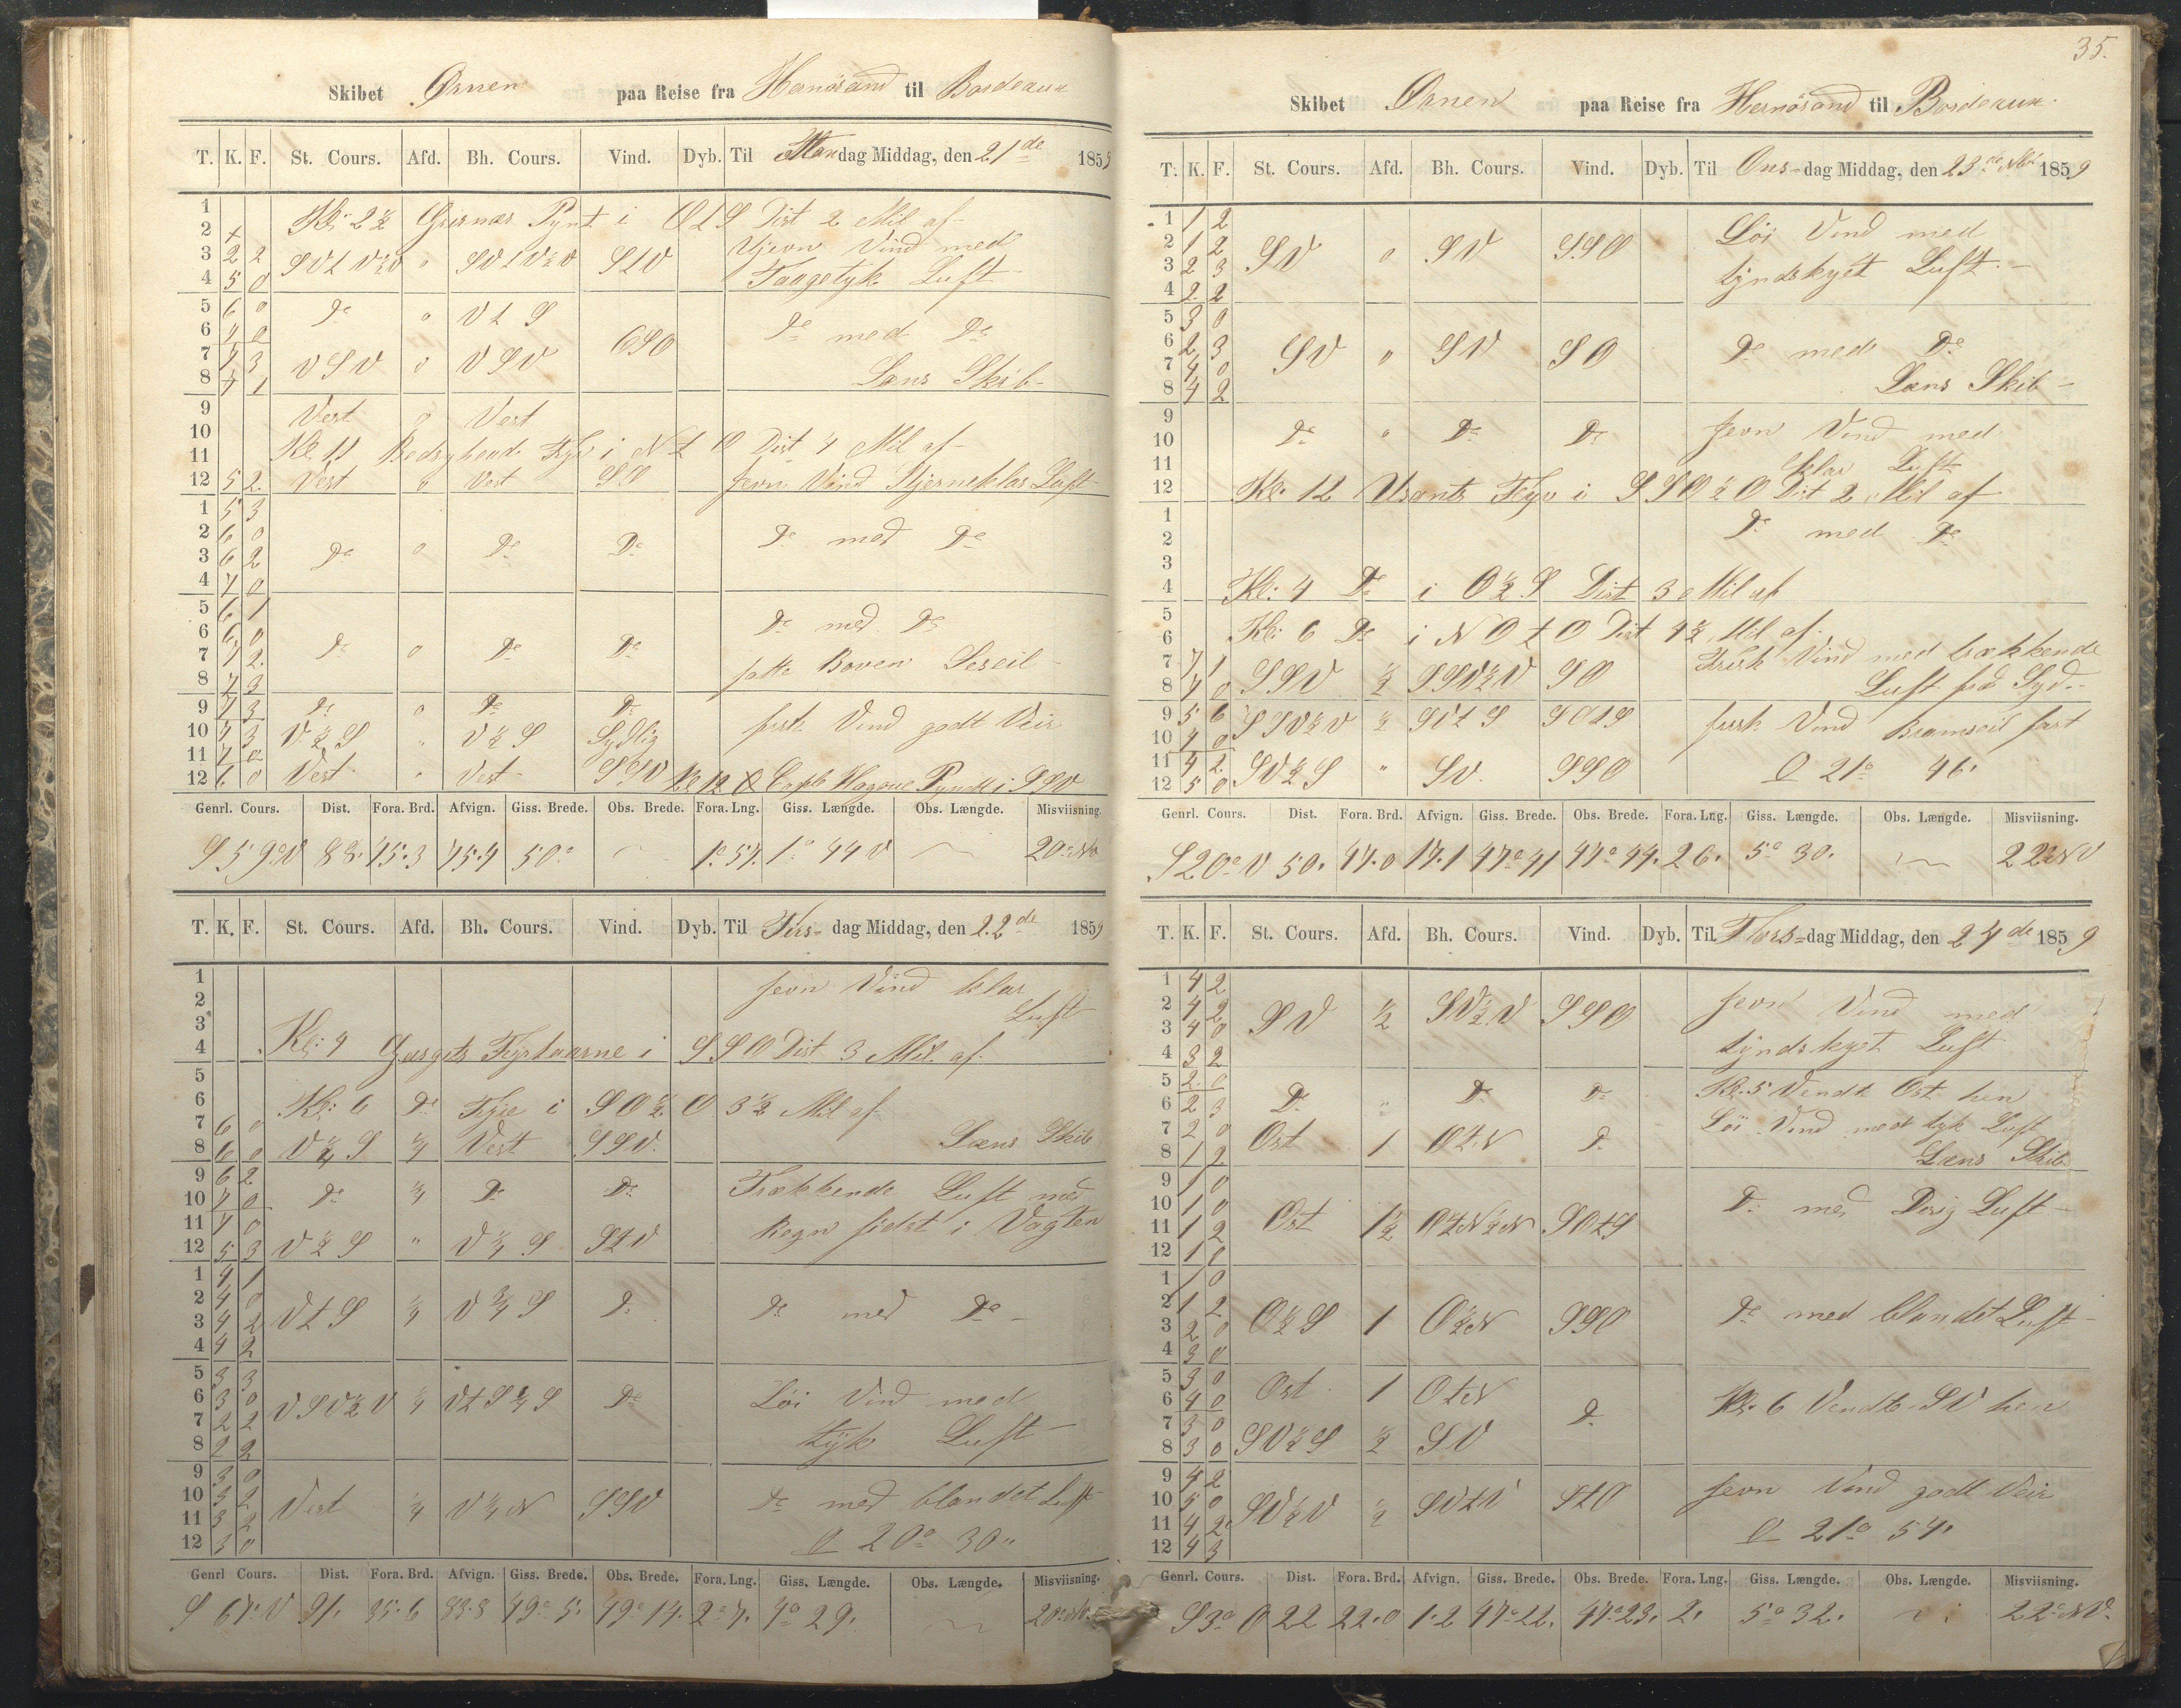 Skibet Ørnen paa Reise fra Hernösand til Bordeaux
T. K. F. St. Cours. Afd. Bh. Cours. Vind. Dyb. Til Mandag Middag, den 21de 1859
1
2 Kl: 2½ Grisnæs Pynt i OtS Dist 2 Mil af
3 2 2 SVtV½V " SVtV½V StV Ujevn Vind med
4 5 0 Taagetyk Luft
5 6 0 Do " VtS
6 7 0 OSO Do med Do
7 7 3 VSV " VSV
8 7 1 Læns Skib
9 Vest " Vest
10
11 Kl 11 Fyr i NtO Dist 4 Mil af
12 5 2 Vest " Vest SO Jevn Vind Stjerneklar Luft
1 5 3
2 6 0 Do med Do
3 6 2 Do " Do Do
4 7 0
5 6 1 Do med Do
6 6 0
7 7 2 Do " Do Do satte Boven Leseil
8 7 3
9 7 3 Do " Do Do frisk Vind godt Veir
10 7 3 V½S " V½S Sydlig
11 7 0 Vest " Vest SSV
12 6 0 Kl 12 Cape Hague Pyndt i SSV
Genrl. Cours. Dist. Fora. Brd. Afvign. Giss. Brede. Obs. Brede. Fora. Lng. Giss. Længde. Obs. Længde. Misviisning.
S59°V 88. 45.3 75.4 50° 1°57. 1°44 V 20° NV
T. K. F. St. Cours. Afd. Bh. Cours. Vind. Dyb. Til Tirsdag Middag, den 22de 1859
1 Jevn Vind klar
2 Luft
3
4 Kl: 4 Fyrtaarne i SSO Dist 3 Mil af
5
6 Kl: 6 Do Fyre i SO½O 3½ Mil af
7 6 0
8 6 0 V¼S ¼ Vest SSV. Læns Skib
9 6 2
10 7 0 Do ¼ Do Do Trækkende Luft med
11 7 0 Regn sidst i Vagten
12 5 3 V½S " V¼S StV
1 4 1
2 4 0
3 4 2 VtS ¼ V¾S Do Do med Do
4 4 2
5 3 3
6 3 0 VSV½V ¼ VtS¼S Do Löi Vind med
7 2 2 tyk Luft
8 2 2
9 3 0
10 3 2 Vest ¼ V¼N SSV Do med blandet Luft
11 3 2
12 3 0 20° 30"
Genrl Cours. Dist. Fora. Brd. Afvign. Giss. Brede. Obs. Brede. Fora. Lng. Giss. Længde. Obs. Længde. Misviisning.
S 67° V 91. 35.6 83.8 49° 5. 49° 14. 2° 7. 4° 29. 20° NV
35.
Skibet Ørnen paa Reise fra Hernösand til Bordeaux.
T. K. F. St. Cours. Afd. Bh. Cours. Vind. Dyb. Til Ons-dag Middag, den 23de 1859
1 1 2 Löi Vind med
2 1 2 SV " SV SSO
3 2 3 tyndskyet Luft.
4 2 2
5 3 0
6 2 3 SV " SV SO Do med Do
7 4 0
8 4 2 Læns Skib
9
10 Do " Do Do Jevn Vind med
11 klar Luft
12 Kl: 12 Usants Fyr i SSO½O Dist 2 Mil af
1
2 Do med Do
3
4 Kl: 4 Do i O½S Dist 3 Mil af
5
6 Kl: 6 Do i NOtO Dist 4½ Mil af
7 7 1 Frisk Vind med trækkende
8 7 0 SSV ½ SSV½V SO Luft fra Syd.
9 5 6 SSV½V ½ SVtS SOtS frisk Vind Bramseil fast
10 4 0
11 4 2 SV½S " SV. SSO 21° 46.
12 5 0
Genrl. Cours. Dist. Fora. Brd. Afvign. Giss. Brede. Obs. Brede. Fora. Lng. Giss. Længde. Obs. Længde. Misviisning.
S20°V 50. 47.0 17.1 47°41 47°44. 26. 5° 30. 22°NV
T. K. F. St. Cours. Afd. Bh. Cours. Vind. Dyb. Til Thors-dag Middag, den 24de 1859
1 4 2
2 4 2 SV ½ SV½V SSO Jevn Vind med
3 4 0
4 3 2 tyndskyet Luft
5 2 0 Do " Do Do Kl: 5 Vendt Ost hen
6 2 3
7 2 0 Ost 1 OtN Do Löi Vind med tyk Luft
8 1 2 Læns Skib
9 1 0
10 1 0 Ost 1½ OtN½N SOtS Do med Disig Luft
11 1 2
12 1 0
1 1 0
2 1 2 O½S 1 O½N SSO Do med blandet Luft
3 2 0
4 3 0
5 3 0 Ost 1 OtN
6 4 0 Do Kl: 6 Vendt SV hen
7 3 0
8 3 0 SV½S ½ SV
9 4 2
10 5 0 SV½V ½ SVtV StO Jevn Vind godt Veir
11 4 2
12 4 3 21° 54.
Genrl. Cours. Dist. Fora. Brd. Afvign. Giss. Brede. Obs. Brede. Fora. Lng. Giss. Længde. Obs. Længde. Misviisning.
S3° O 22 22.0 1.2 47°22. 47°23. 2. 5° 32. 22° NV.